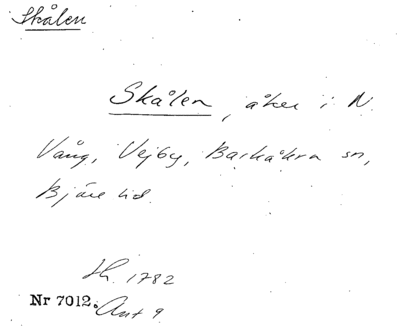 Skålen
Skålen, åker i N.
Vång, Vejby, Barkåkra sn,
Bjäre hd.
Sk. 1782
Nr 7012. Ant 9